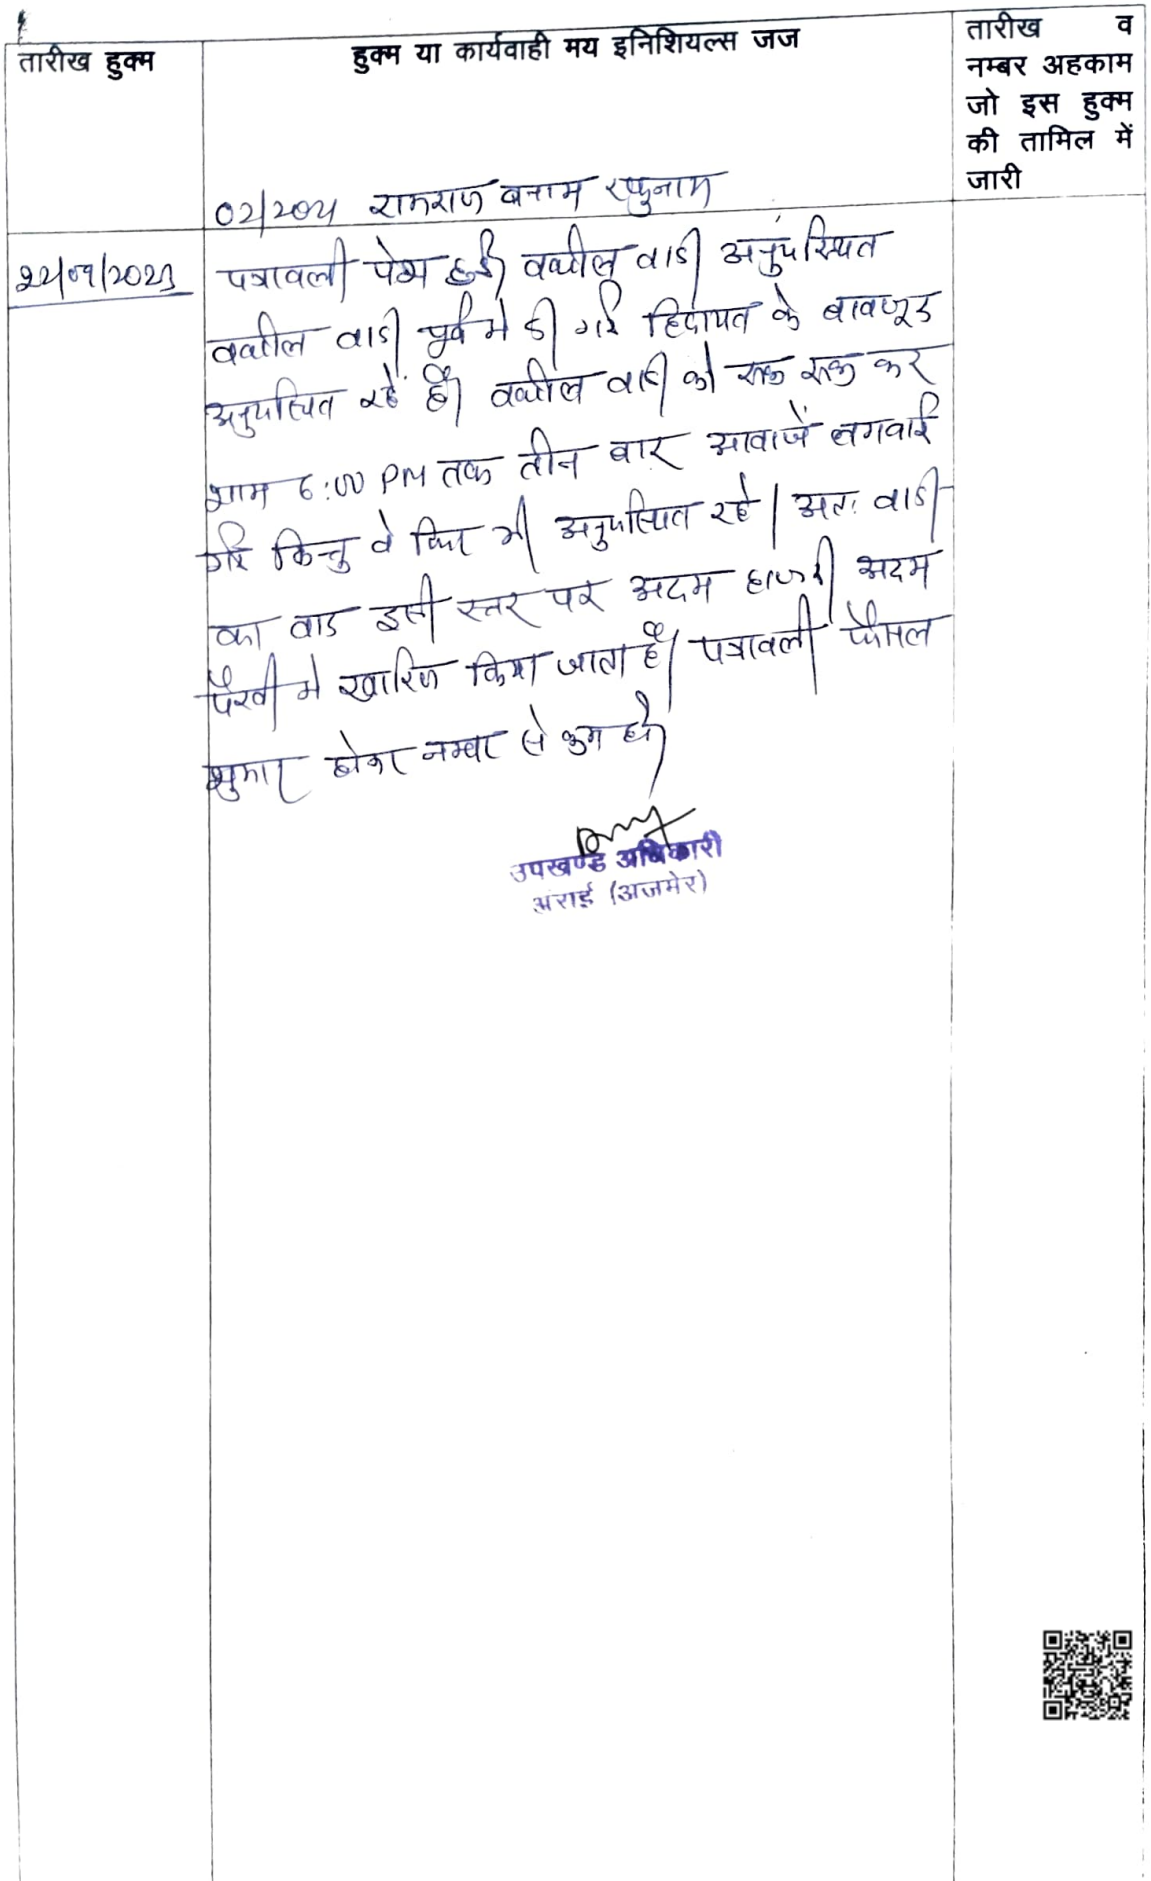 तारीख हुक्म
हुक्म या कार्यवाही मय इनिशियल्स जज
तारीख व
नम्बर अहकाम
जो इस हुक्म
की तामिल में
जारी
रामराज बनाम रघुनाथ
पत्रावली पेश हुई। वकील वादी अनुपस्थित
वकील वादी पूर्व मे दी गई हिदायत के बावजूद
अनुपस्थित रहें है। वकील वादी को रूक रूक कर
शाम 6:00 PM तक तीन बार आवाजें लगवाई
गई किन्तु वे फिर भी अनुपस्थित रहे। अतः वादी
का वाद इसी स्तर पर अदम हाजरी अदम
पैरवी मे खारिज किया जाता है। पत्रावली फैसल
शुमार होकर नम्बर से कम हो।
उपखण्ड अधिकारी
अराई (अजमेर)